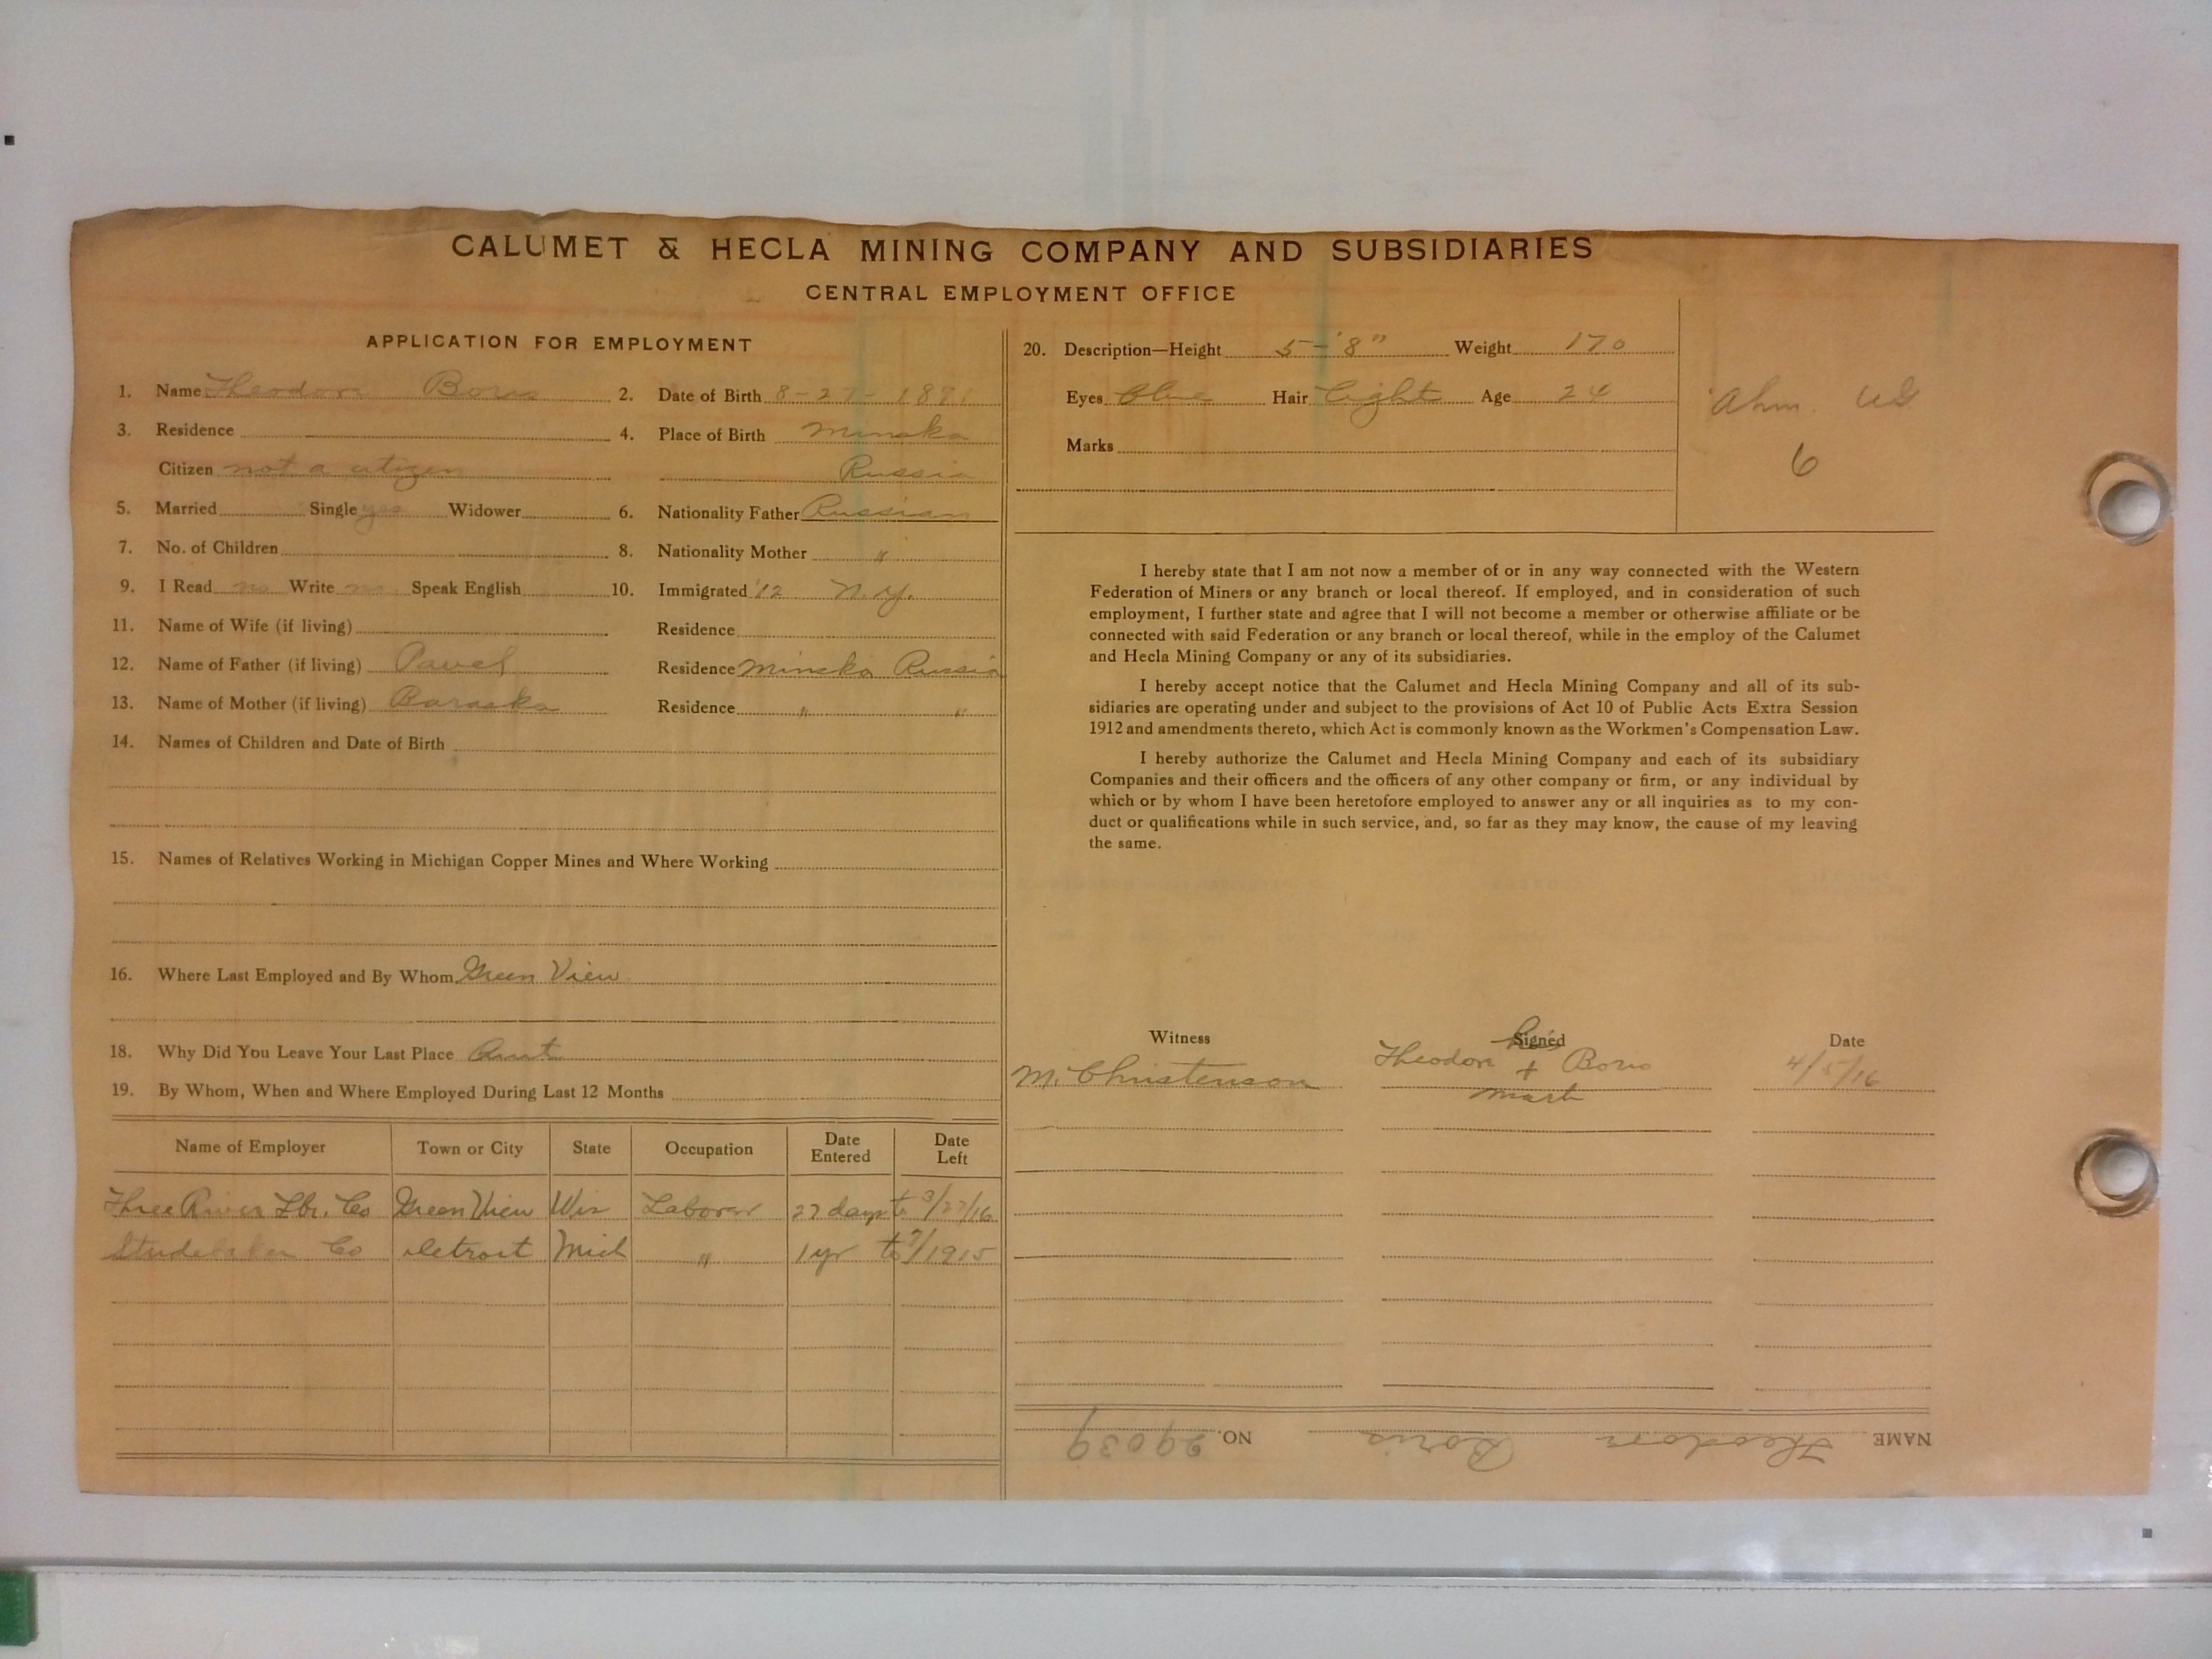 CALUMET & HECLA MINING COMPANY AND SUBSIDIARIES
CENTRAL EMPLOYMENT OFFICE
APPLICATION FOR EMPLOYMENT
1. Name Theodore Boris 2. Date of Birth 8-27-1891
3. Residence 4. Place of Birth Minska
Citizen not a citizen Russia
5. Married Single yes Widower 6. Nationality Father Russian
7. No. of Children 8. Nationality Mother "
9. I Read no Write no Speak English 10. Immigrated '12 N.Y.
11. Name of Wife (if living) Residence
12. Name of Father (if living) Pavel Residence Minska Russia
13. Name of Mother (if living) Baraska Residence " "
14. Names of Children and Date of Birth
15. Names of Relatives Working in Michigan Copper Mines and Where Working
16. Where Last Employed and By Whom Green View
18. Why Did You Leave Your Last Place
19. By Whom, When and Where Employed During Last 12 Months
Name of Employer Town or City State Occupation Date Entered Date Left
Three River Lbr. Co Green View Wis Laborer 27 days to 3/27/16
Studebaker Co Detroit Mich " 1 yr to 7/1915
20. Description—Height 5-'8" Weight 170
Eyes blue Hair light Age 24
Marks
Ahm. UG
6
I hereby state that I am not now a member of or in any way connected with the Western
Federation of Miners or any branch or local thereof. If employed, and in consideration of such
employment, I further state and agree that I will not become a member or otherwise affiliate or be
connected with said Federation or any branch or local thereof, while in the employ of the Calumet
and Hecla Mining Company or any of its subsidiaries.
I hereby accept notice that the Calumet and Hecla Mining Company and all of its sub-
sidiaries are operating under and subject to the provisions of Act 10 of Public Acts Extra Session
1912 and amendments thereto, which Act is commonly known as the Workmen's Compensation Law.
I hereby authorize the Calumet and Hecla Mining Company and each of its subsidiary
Companies and their officers and the officers of any other company or firm, or any individual by
which or by whom I have been heretofore employed to answer any or all inquiries as to my con-
duct or qualifications while in such service, and, so far as they may know, the cause of my leaving
the same.
Witness Signed Date
his
M. Christenson Theodore + Boris 4/5/16
mark
NAME Theodore Boris NO. 29039